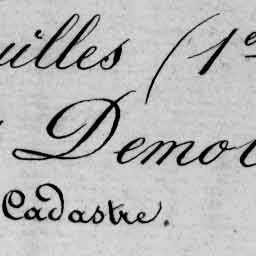 uilles (1e
Demoi
Cadastre.